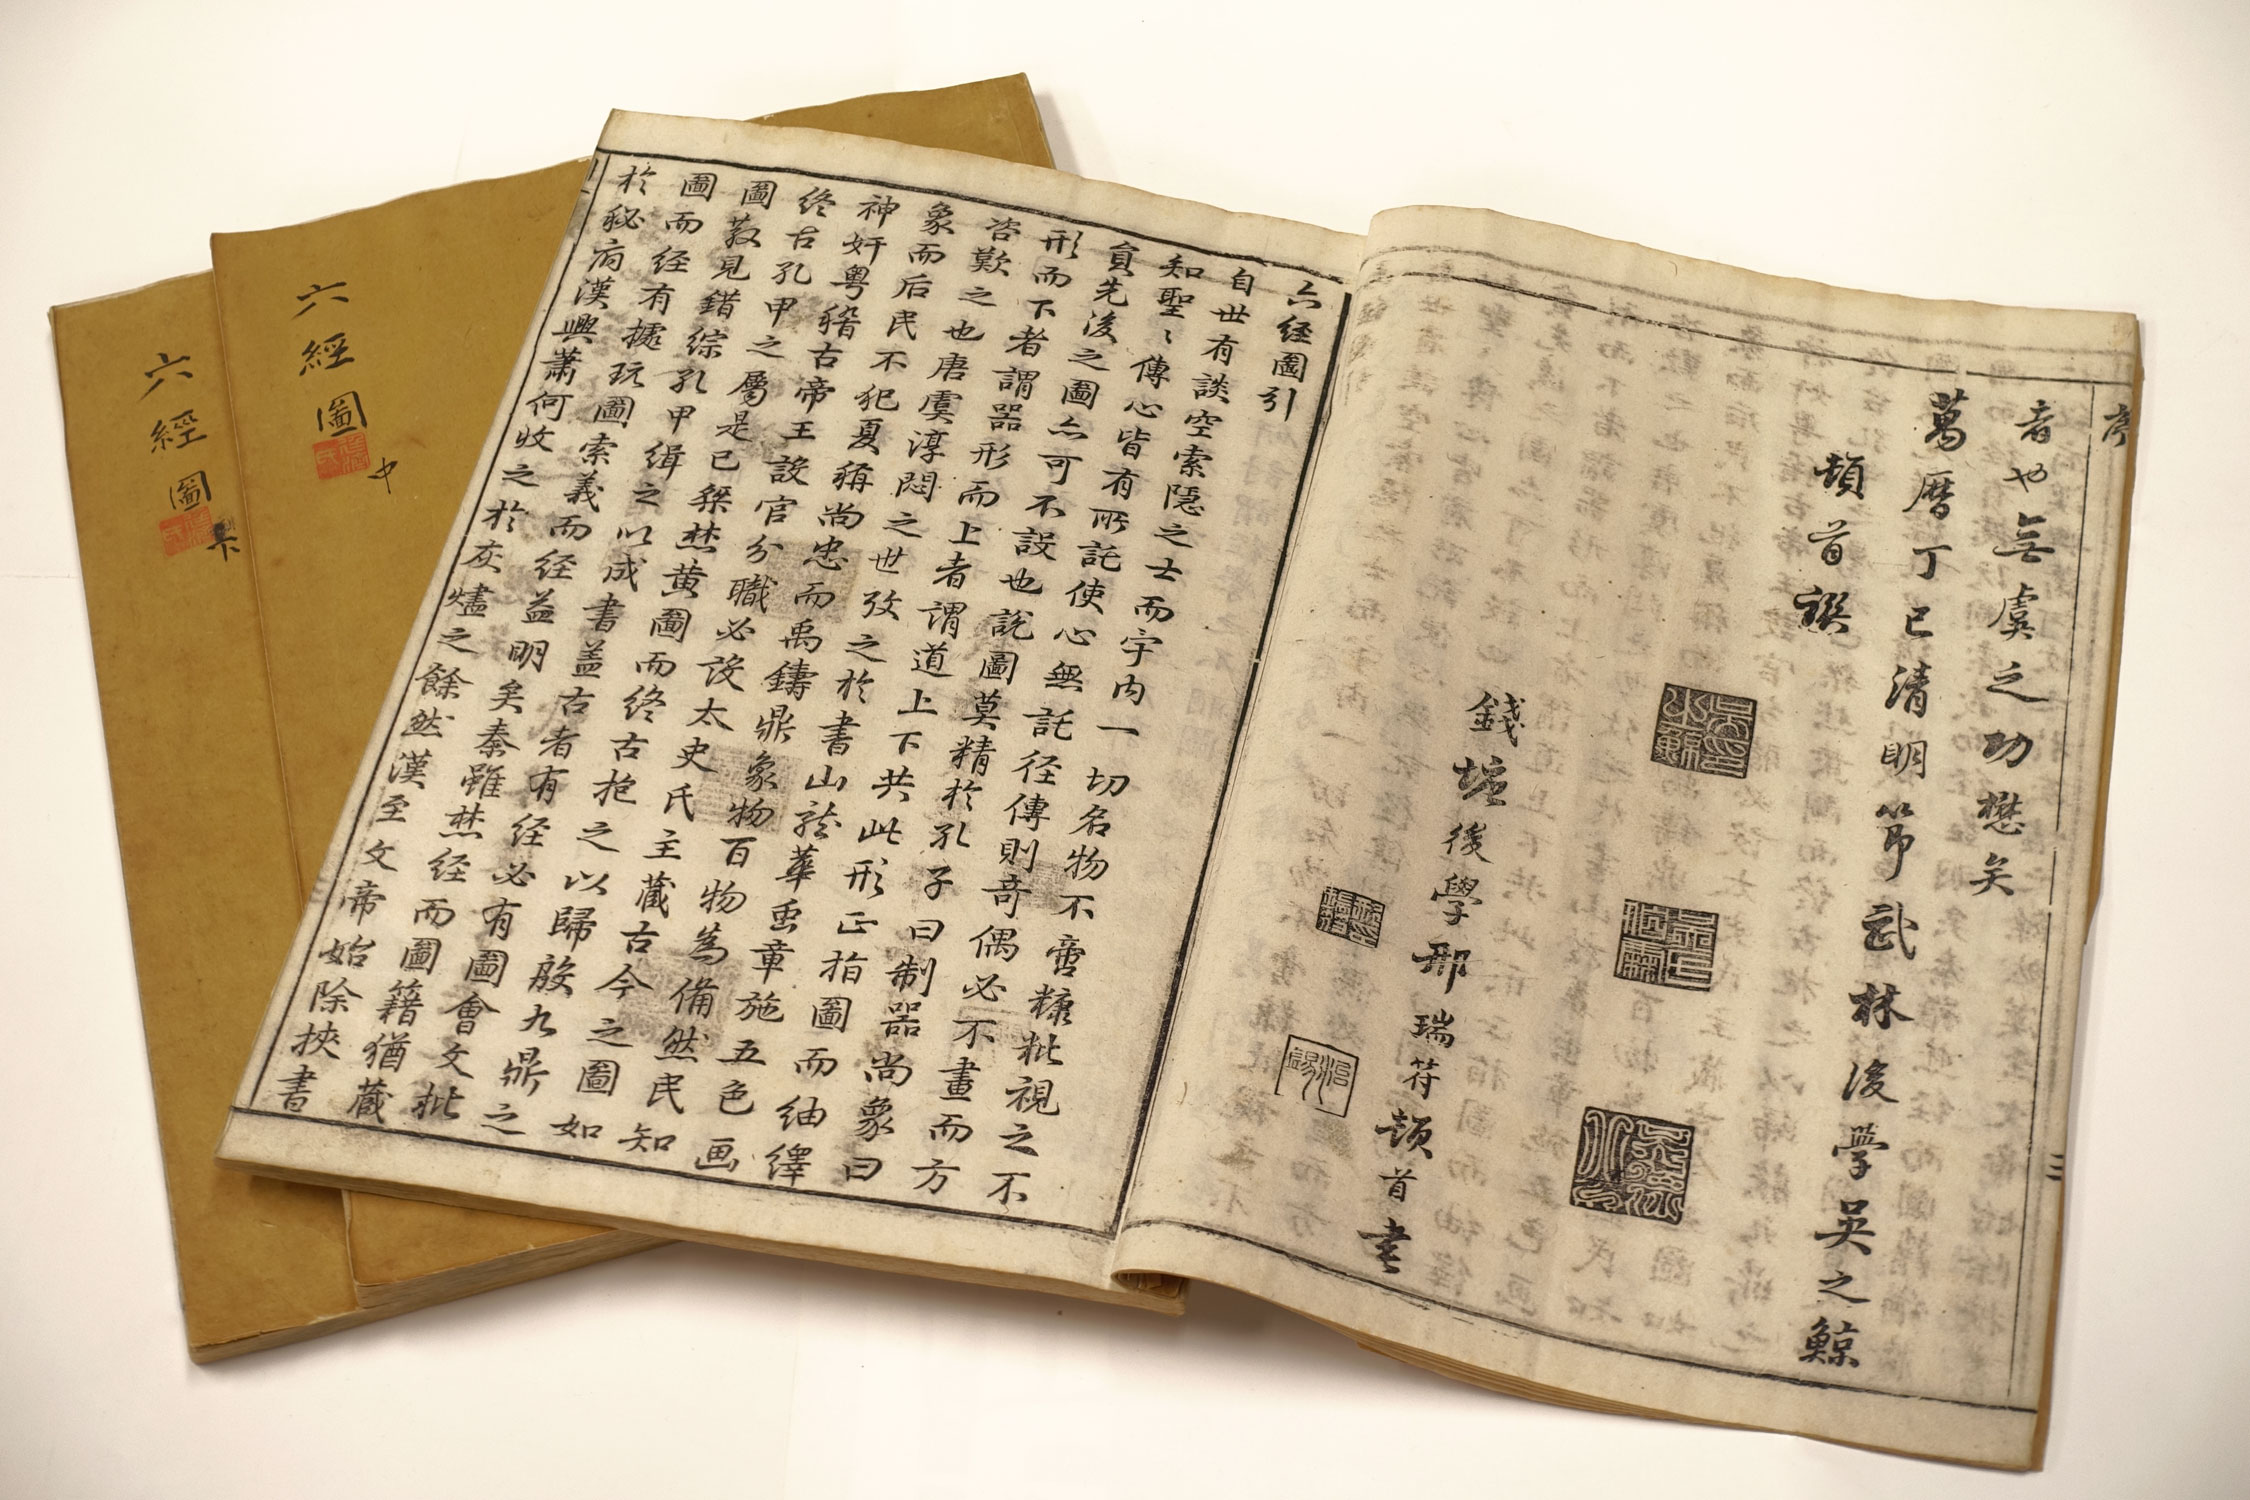 序
者也無虞之功懋矣
萬曆丁巳清明節武林後學吳之鯨
頓首譔
錢塘後學邢瑞符頓首書
三
六経圖引
自世有談空索隱之士而宇内一切名物不啻糠粃視之不
知聖〻傳心皆有所託使心無託径傳則竒偶必不畫而方
貟先後之圖亦可不設也説圖莫精於孔子曰制器尚象曰
形而下者謂器形而上者謂道上下共此形正指圖而紬繹
咨歎之也唐虞淳悶之世攷之於書山龍華虫章施五色画
象而后民不犯夏稱尚忠而禹鑄鼎象物百物為備然民知
神奸粤稽古帝王設官分職必設太史氏主蔵古今之圖如
终古孔甲之屬是已桀焚黄圖而终古抱之以歸殷九鼎之
圖散見錯綜孔甲緝之以成書盖古者有経必有圖會文批
圖而経有據玩圖索義而経益明矣秦雖焚経而圖籍猶蔵
於秘府漢興蕭何收之於灰燼之餘然漢至文帝始除挾書
六經圖 中
六經圖